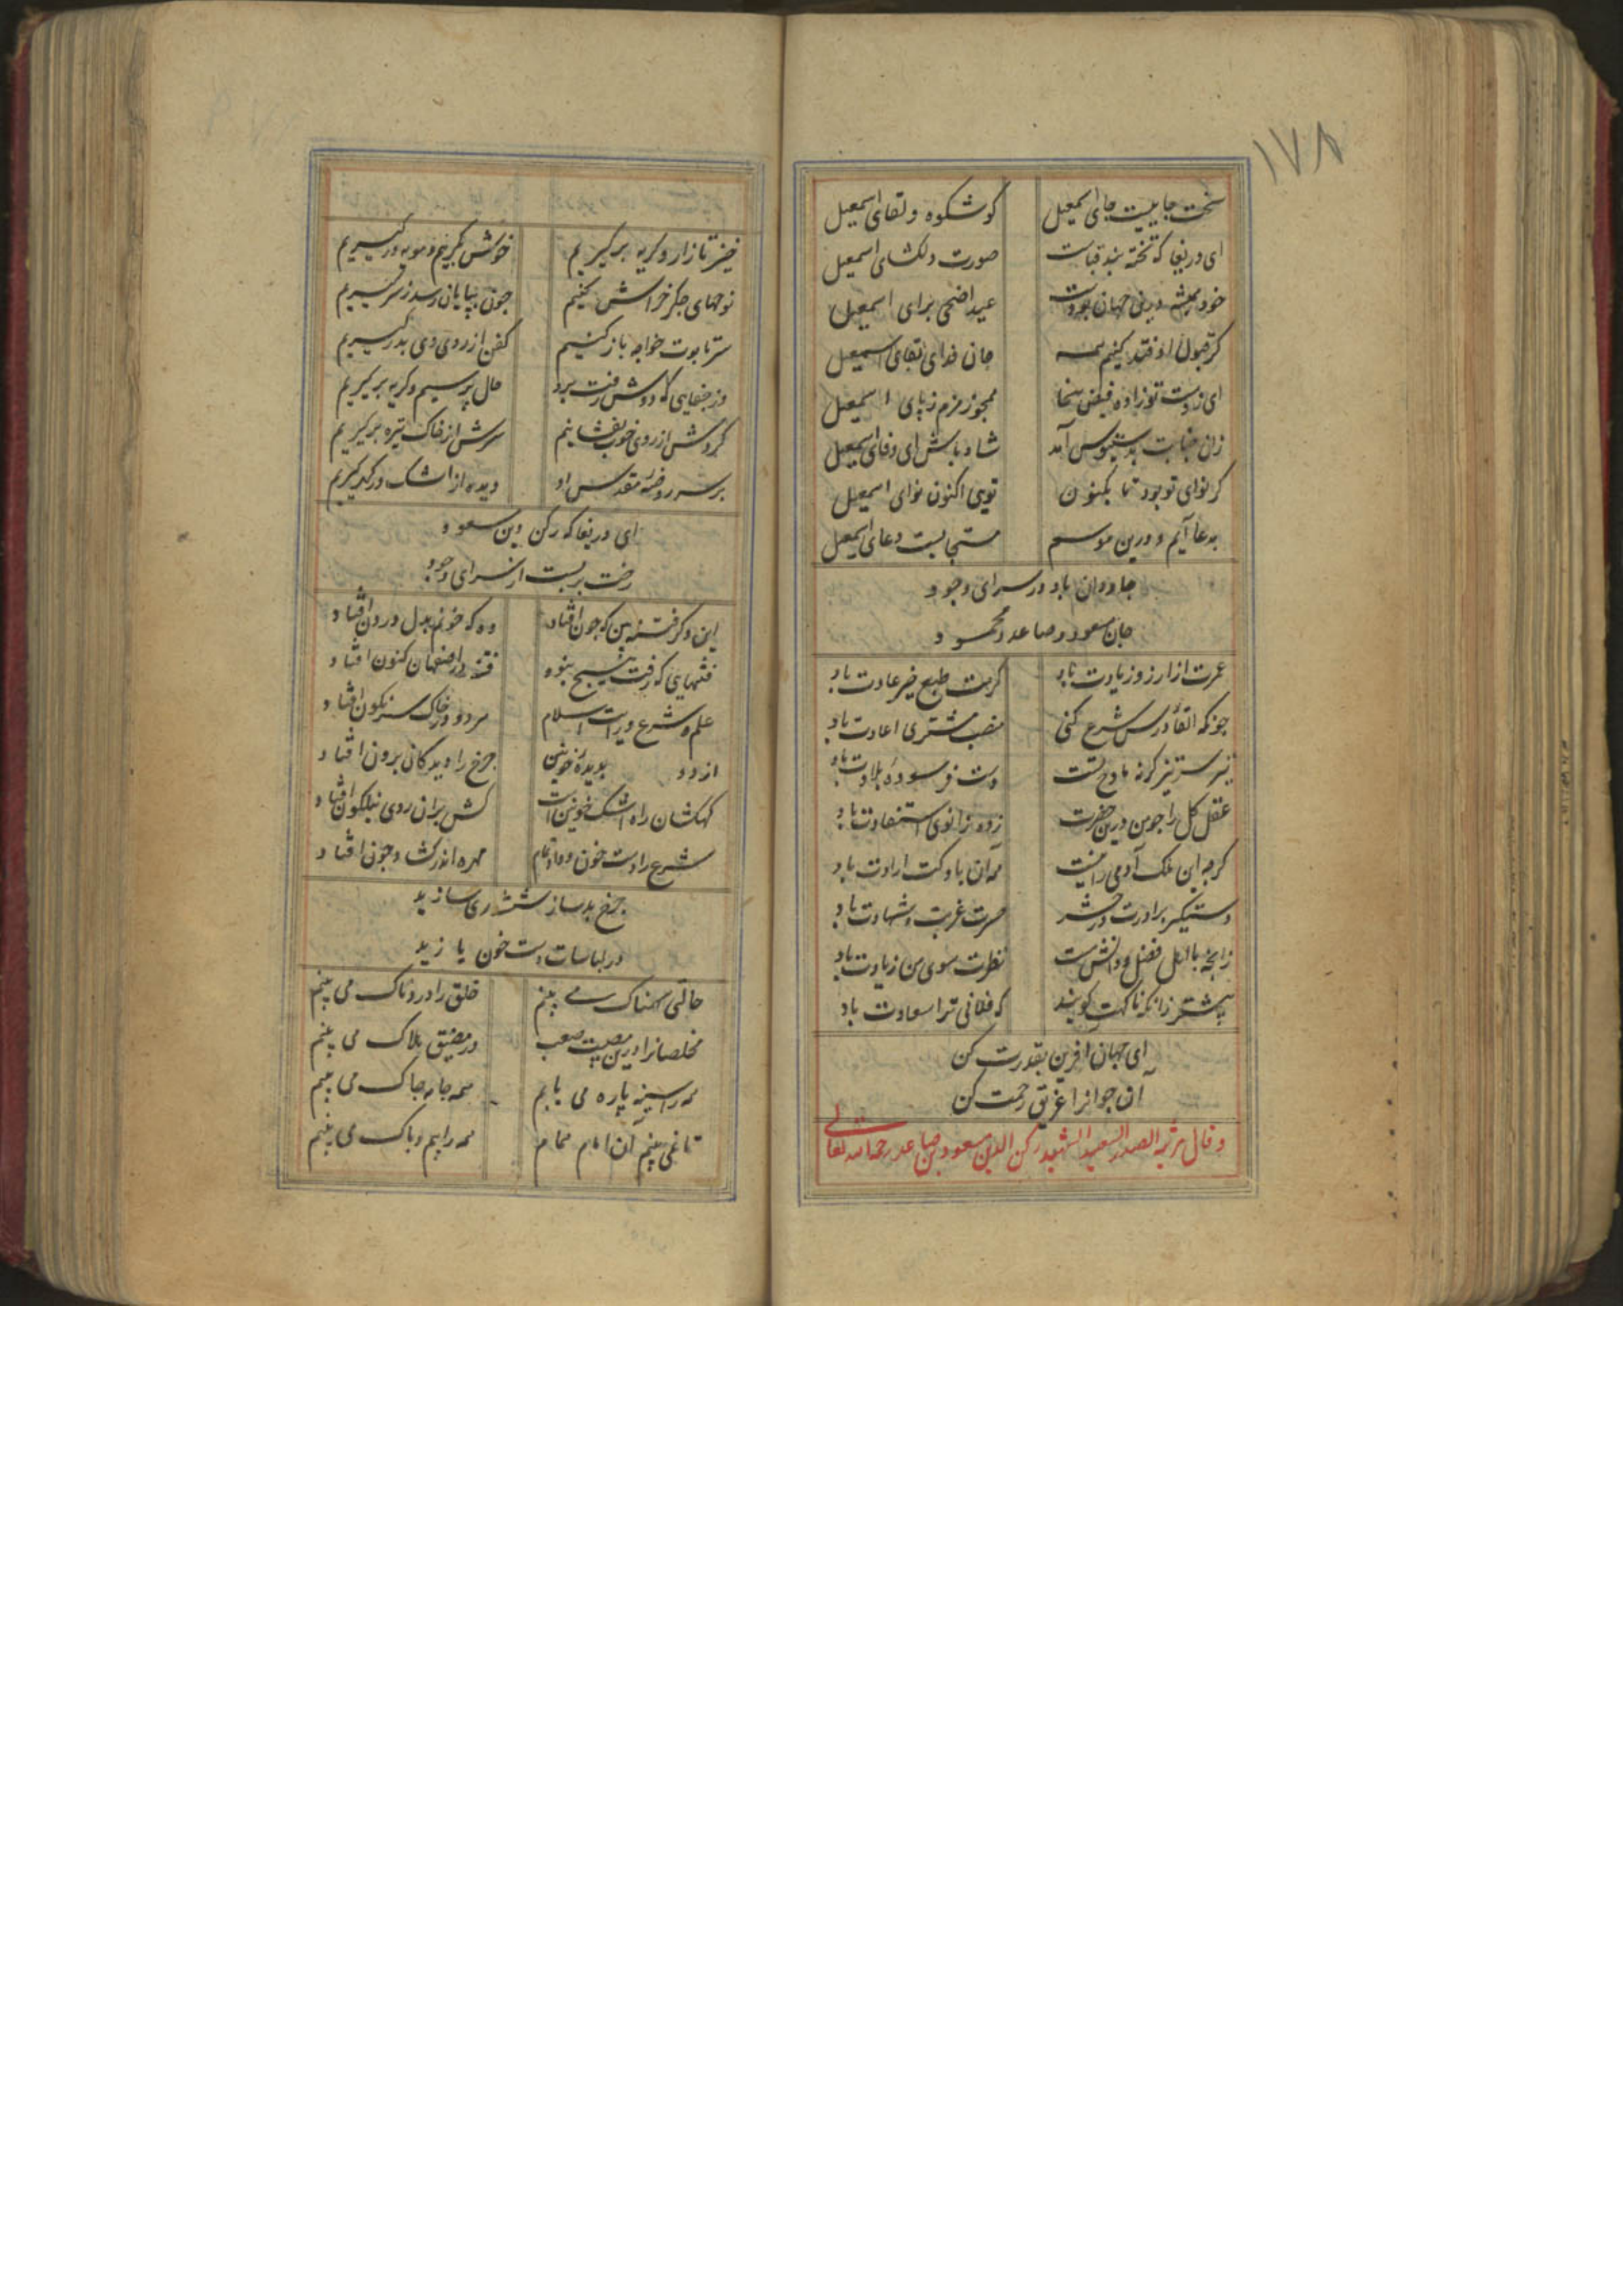 ۱۷۸
سخت جاییست جای اسمعیل کو شکوه و لقای اسمعیل
ای دریغا که تخته بند قباست صورت دلکشای اسمعیل
خود همیشه درین جهان بودست عید اضحی برای اسمعیل
گر قبول اوفتد کنیم همه جان فدای لقای اسمعیل
ای ز دست تو زاده فیض سخا همجو زمزم ز پای اسمعیل
زان جنابت بدستبوس آمد شاد باش ای وفای اسمعیل
گر نوای تو بود تا بکنون تویی اکنون نوای اسمعیل
بدعا آیم و درین موسم مستجابست دعای اسمعیل
جاودان باد در سرای وجود
جان مسعود و صاعد و محمود
عمرت از آرزو زیادت باد کرمت طبع خیر عادت باد
جونکه القاء درس شرع کنی منصب مشتری اعادت باد
تیر سر تیز گرنه مادح تست دست فرسوده بلادت باد
عقل کل را جو من درین حضرت زده زانوی استفادت باد
گرجه این ملک آدمی را نیست همه آن باد کت ارادت باد
دستگیر برادرت در حشر حسرت غربت و شهادت باد
زانجه با اهل فضل و دانش است نظرت سوی من زیادت باد
پیشتر زانکه ناگهت گویند که فلانی ترا سعادت باد
ای جهان آفرین بقدرت کن
آن جوانرا غریق رحمت کن
و قال مرثیه الصدر السعید الشهید رکن الدین مسعود بن صاعد رحمه الله تعالی
خیز تا زار و گریه برگیریم خوش بگرییم و مویه درگیریم
نوحهای جگرخراش کنیم جون بپایان رسد ز سر گیریم
سر تابوت خواجه باز کنیم کفن از روی وی بدر گیریم
وز جفایی که دوش رفت برو حال پرسیم و گریه برگیریم
گردش از روی خوب بفشانیم سرش از خاک تیره برگیریم
بر سر روضه مقدس او دیده از اشک در گهر گیریم
ای دریغا که رکن دین مسعود
رخت بربست از سرای وجود
این دگر فتنه بین که جون افتاد وه که خونم بدل درون افتاد
فتنهایی که رفت هیج نبود فتنه در اصفهان کنون افتاد
علم شرع و رایت اسلام هر دو در خاک سرنگون افتاد
از دو بدیده خونین جرخ را دیدگانی برون افتاد
کهکشان راه اشک خونین است کش بران روی نیلگون افتاد
شرع را دست خون و داد تمام مهره اندر گشاد جون افتاد
جرخ بدساز ششدری سازید
در لباسات دست خون یا زید
حالتی سهمناک می بینم خلق را دردناک می بینم
مخلصانرا درین مصیبت صعب در مضیق هلاک می بینم
همه را سینه پاره می یابم همه جامه جاک می بینم
تا نمی بینم آن امام همام همه را بیم و باک می بینم